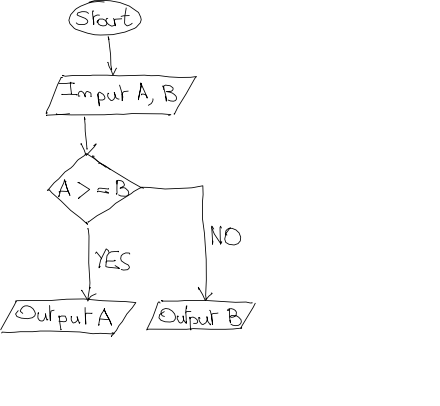 Start
Imput A, B
A > = B
NO
YES
Output A
Output B